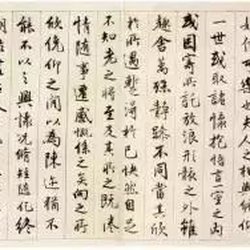 一世或取諸懷抱悟言一室之內
或因寄所託放浪形骸之外雖
趣舍萬殊靜躁不同當其欣
於所遇暫得於己快然自足
不知老之將至及其所之既惓
情隨事遷感慨係之矣向之所
欣俛仰之間以為陳迹猶不
能不以之興懷況脩短隨化終